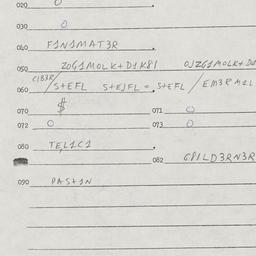 020 0
030 0
040 F1N1MAT3R
050 ZOG1MOLK+D1K8I
060 C1B3R/S+EFL S+EJFL = S+EFL / EM3R
070 $ 071 0
072 0 073 0
080 TE,L1C1
082 G8ILD3RN3R
090 PAS+1N